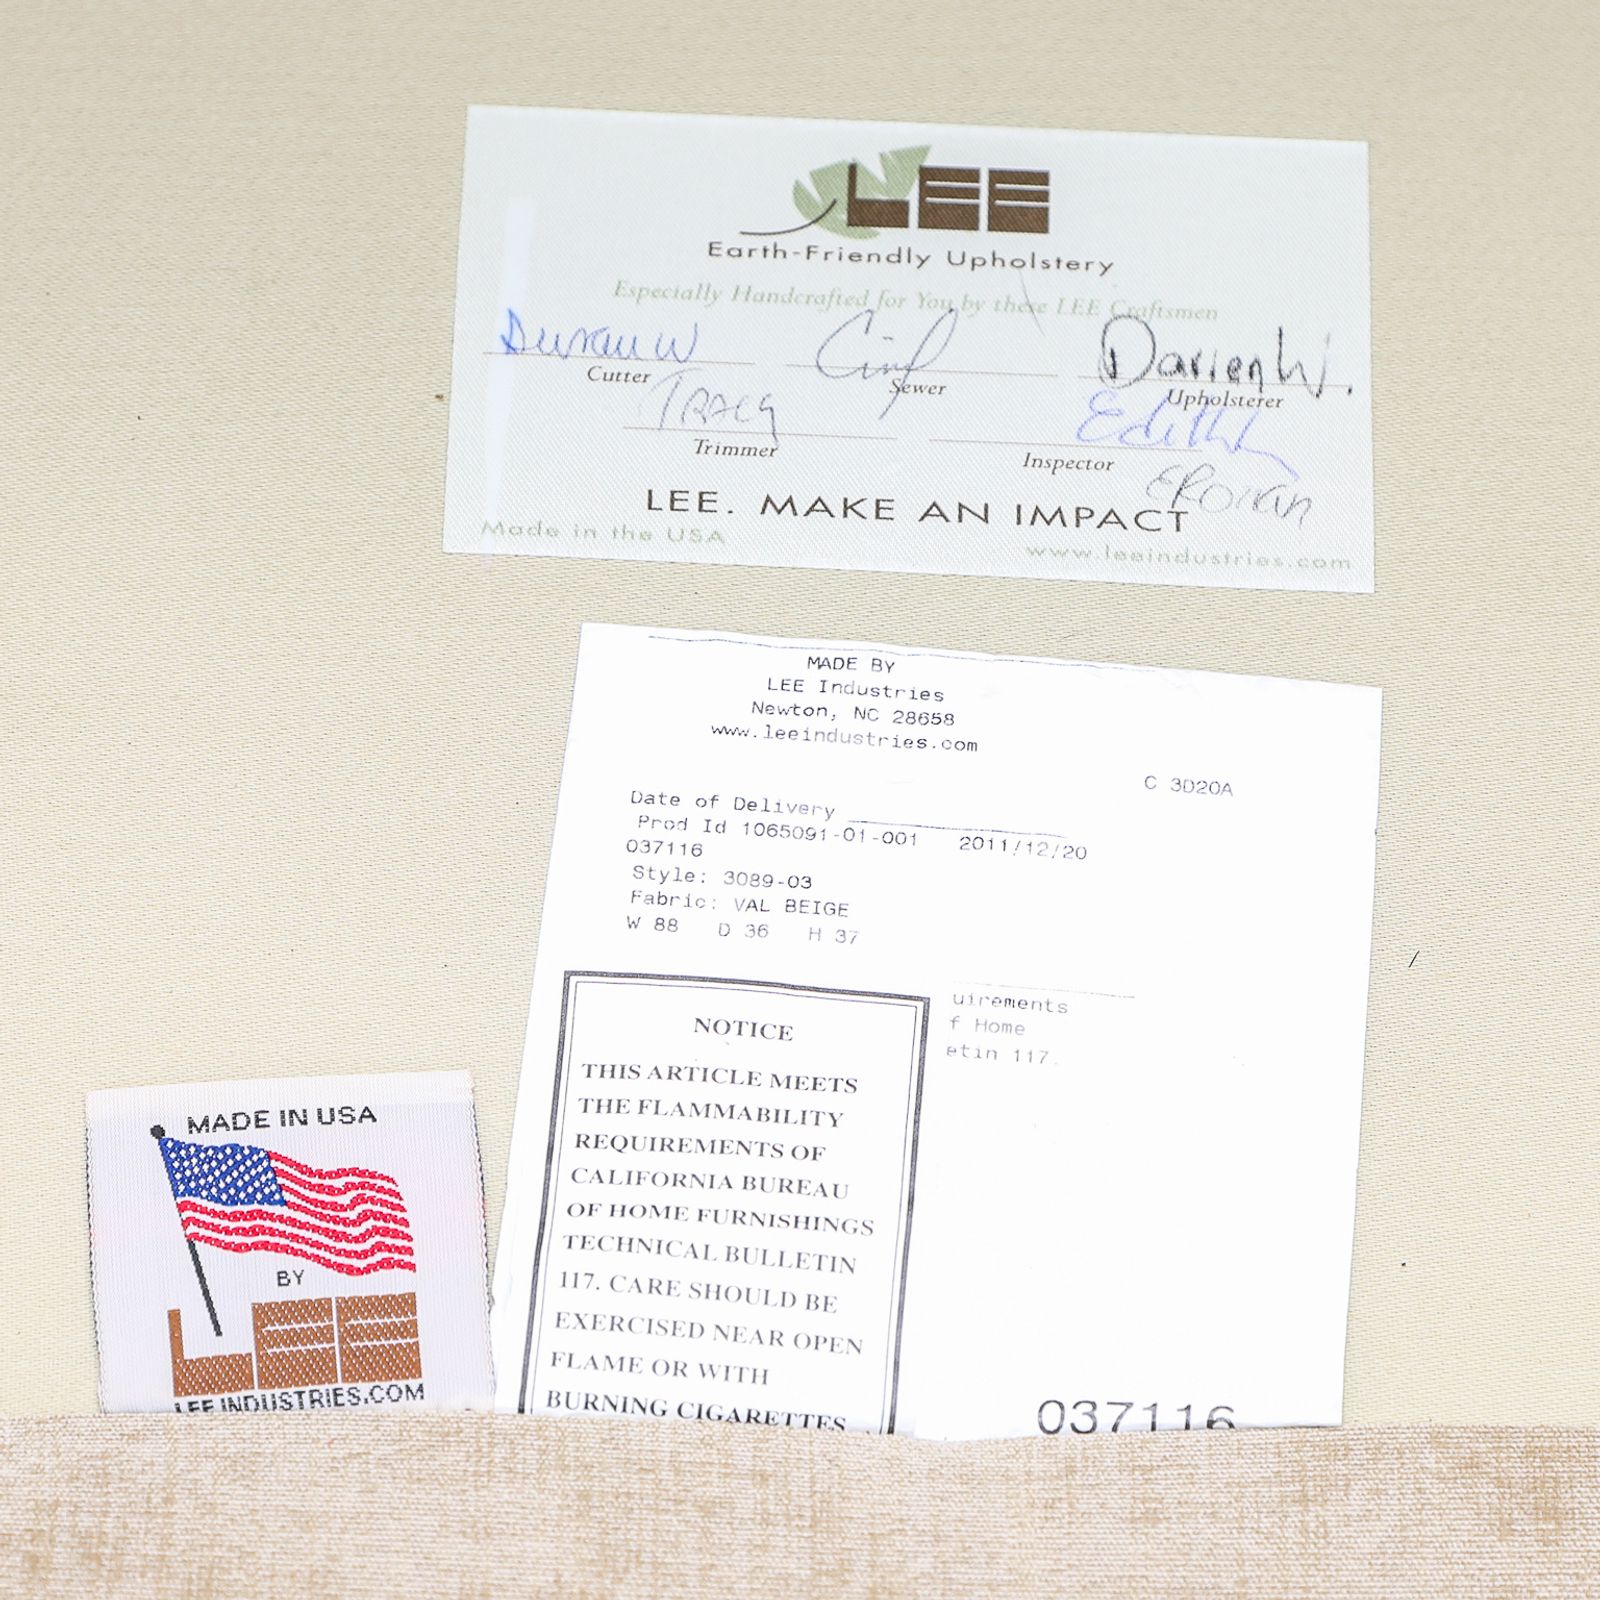 LEE
Earth-Friendly Upholstery
Especially Handcrafted for You by these LEE Craftsmen
Darien W.
Cutter
Sewer
Upholsterer
Tracy
Edith
Trimmer
Inspector
LEE. MAKE AN IMPACT
Made in the USA
www.leeindustries.com
MADE BY
LEE Industries
Newton, NC 28658
www.leeindustries.com
C 3D20A
Date of Delivery
Prod Id 1065091-01-001 2011/12/20
037116
Style: 3089-03
Fabric: VAL BEIGE
W 88 D 36 H 37
uirements
f Home
etin 117.
NOTICE
THIS ARTICLE MEETS
THE FLAMMABILITY
REQUIREMENTS OF
CALIFORNIA BUREAU
OF HOME FURNISHINGS
TECHNICAL BULLETIN
117. CARE SHOULD BE
EXERCISED NEAR OPEN
FLAME OR WITH
BURNING CIGARETTES
037116
MADE IN USA
BY
LEE
LEEINDUSTRIES.COM